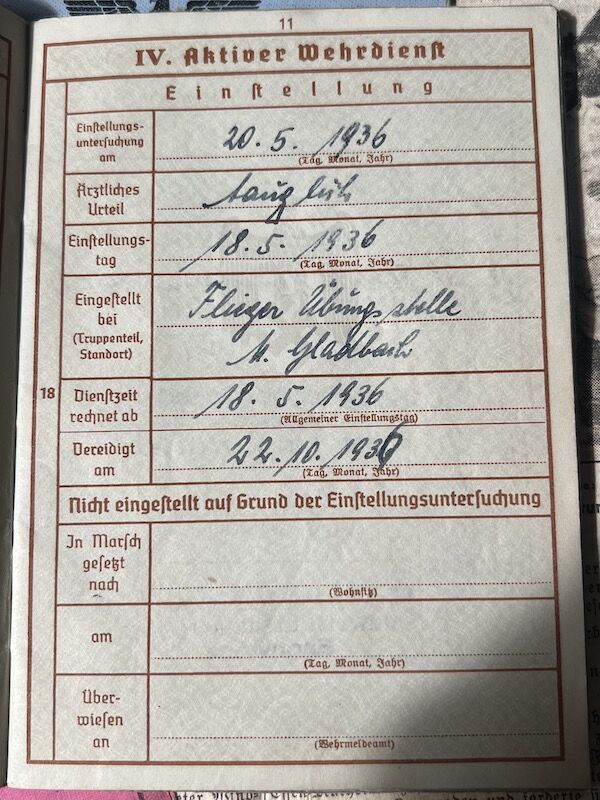 11
IV. Aktiver Wehrdienst
Einstellung
Einstellungs-
untersuchung
am
20. 5. 1936
(Tag, Monat, Jahr)
Ärztliches
Urteil
tauglich
Einstellungs-
tag
18. 5. 1936
(Tag, Monat, Jahr)
Eingestellt
bei
(Truppenteil,
Standort)
Flieger Übungsstelle
M. Gladbach
18
Dienstzeit
rechnet ab
18. 5. 1936
(Allgemeiner Einstellungstag)
Vereidigt
am
22. 10. 1936
(Tag, Monat, Jahr)
Nicht eingestellt auf Grund der Einstellungsuntersuchung
In Marsch
gesetzt
nach
(Wohnsitz)
am
(Tag, Monat, Jahr)
Über-
wiesen
an
(Wehrmeldeamt)